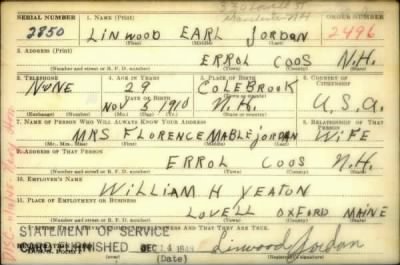 330 Lowell St
Manchester NH
SERIAL NUMBER 1. NAME (Print) ORDER NUMBER
2850 LINWOOD EARL JORDAN 2496
(First) (Middle) (Last)
2. ADDRESS (Print)
ERROL COOS N.H.
(Number and street or R. F. D. number) (Town) (County) (State)
3. TELEPHONE 4. AGE IN YEARS 5. PLACE OF BIRTH 6. COUNTRY OF CITIZENSHIP
NONE 29 COLEBROOK
DATE OF BIRTH (Town or county)
NOV 5 1910 N.H. U.S.A.
(Exchange) (Number) (Mo.) (Day) (Yr.) (State or country)
7. NAME OF PERSON WHO WILL ALWAYS KNOW YOUR ADDRESS 8. RELATIONSHIP OF THAT PERSON
MRS FLORENCE MABLE JORDAN WIFE
(Mr., Mrs., Miss) (First) (Middle) (Last)
9. ADDRESS OF THAT PERSON
ERROL COOS N.H.
(Number and street or R. F. D. number) (Town) (County) (State)
10. EMPLOYER'S NAME
WILLIAM H YEATON
11. PLACE OF EMPLOYMENT OR BUSINESS
LOVELL OXFORD MAINE
(Number and street or R. F. D. number) (Town) (County) (State)
I AFFIRM THAT I HAVE VERIFIED ABOVE ANSWERS AND THAT THEY ARE TRUE.
STATEMENT OF SERVICE
CARD FURNISHED DEC 14 Linwood Jordan
(Date)